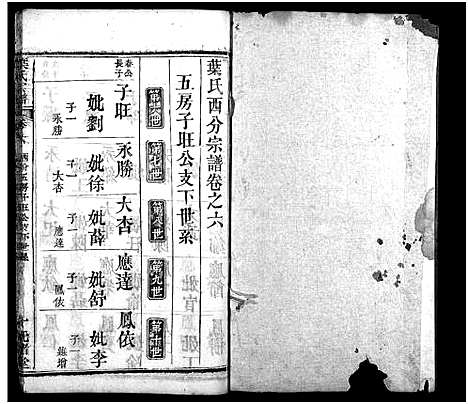 葉氏西分宗譜卷之六
五房子旺公支下世系
第六世
第七世
第八世
第九世
第十世
春公
長子
子旺
永勝
大杏
應達
鳳依
妣劉
妣徐
妣薛
妣舒
妣李
子一
永勝
子一
大杏
子一
應達
子一
鳳依
子一
葉氏宗譜
卷六
西分五房子旺公支下世系